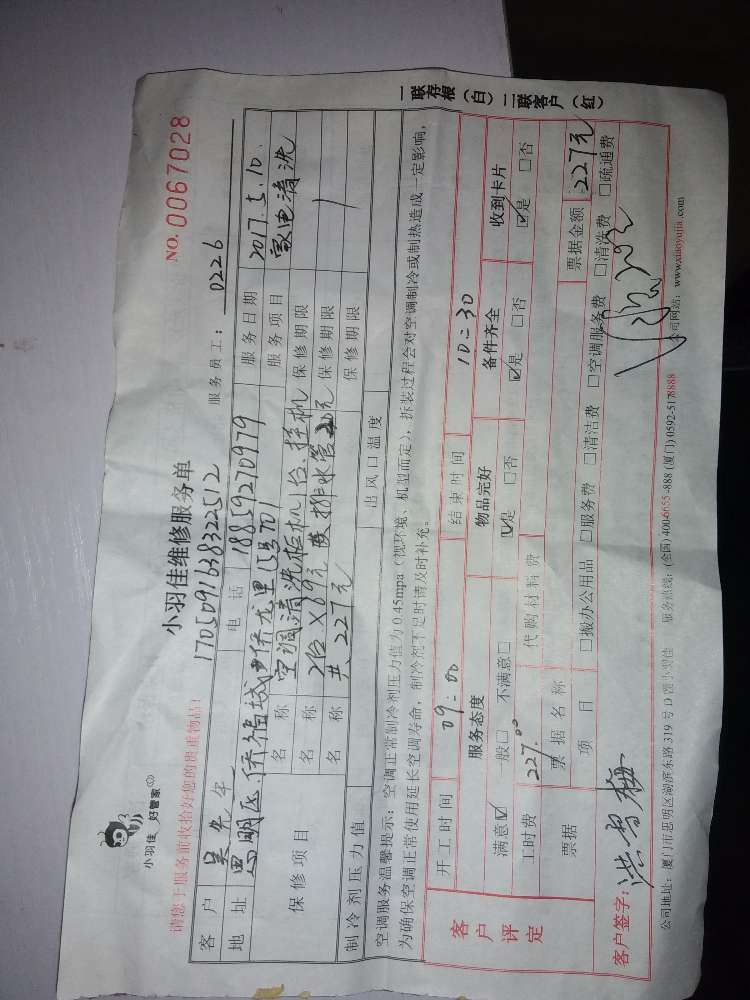 小羽佳 好管家
小羽佳维修服务单
NO. 0067028
请您于服务前收拾好您的贵重物品!
1705091638322512
服务员工: 0226
客户 吴先生 电话 18859270979 服务日期 2017.5.10.
地址 思明区侨福城 侨龙里 701 服务项目 家电清洗
保修项目
名称 空调清洗柜机1台.挂机 保修期限
名称 2台×69元 排水管20元 保修期限
名称 共227元 保修期限
制冷剂压力值 出风口温度
空调服务温馨提示:空调正常制冷剂压力值为0.45mpa(视环境、机型而定),拆装过程会对空调制冷或制热造成一定影响,
为确保空调正常使用延长空调寿命,制冷剂不足时请及时补充。
客户评定
开工时间 09:00 结束时间 10:30
服务态度 物品完好 备件齐全 收到卡片
满意☑ 一般□ 不满意□ ☑是 □否 ☑是 □否 ☑是 □否
工时费 227.00 代购材料费
票据 票据名称 票据金额 227元
项目 □搬办公用品 □服务费 □清洁费 □空调服务费 □清洗费 □疏通费
客户签字:
公司地址:厦门市思明区湖滨东路319号D馆小羽佳 服务热线:(全国)4006655-888 (厦门)0592-5178888 公司网站:www.xiaoyujia.com
一联存根(白) 二联客户(红)